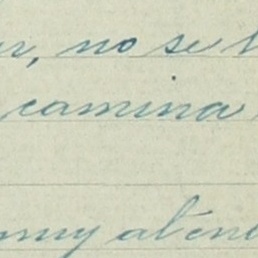 no se
camina
muy aten